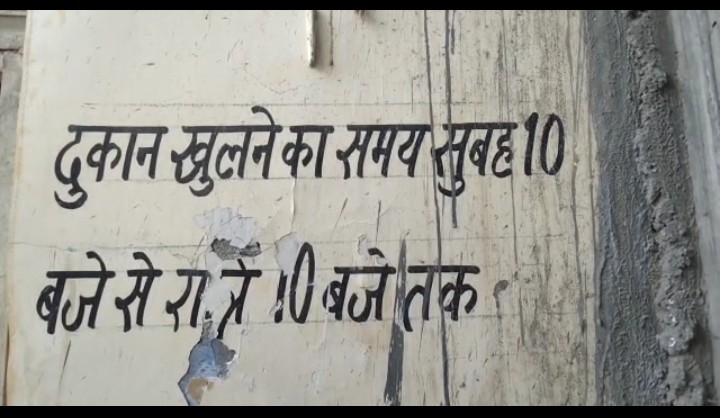 दुकान खुलने का समय सुबह 10
बजे से रात्रि 10 बजे तक